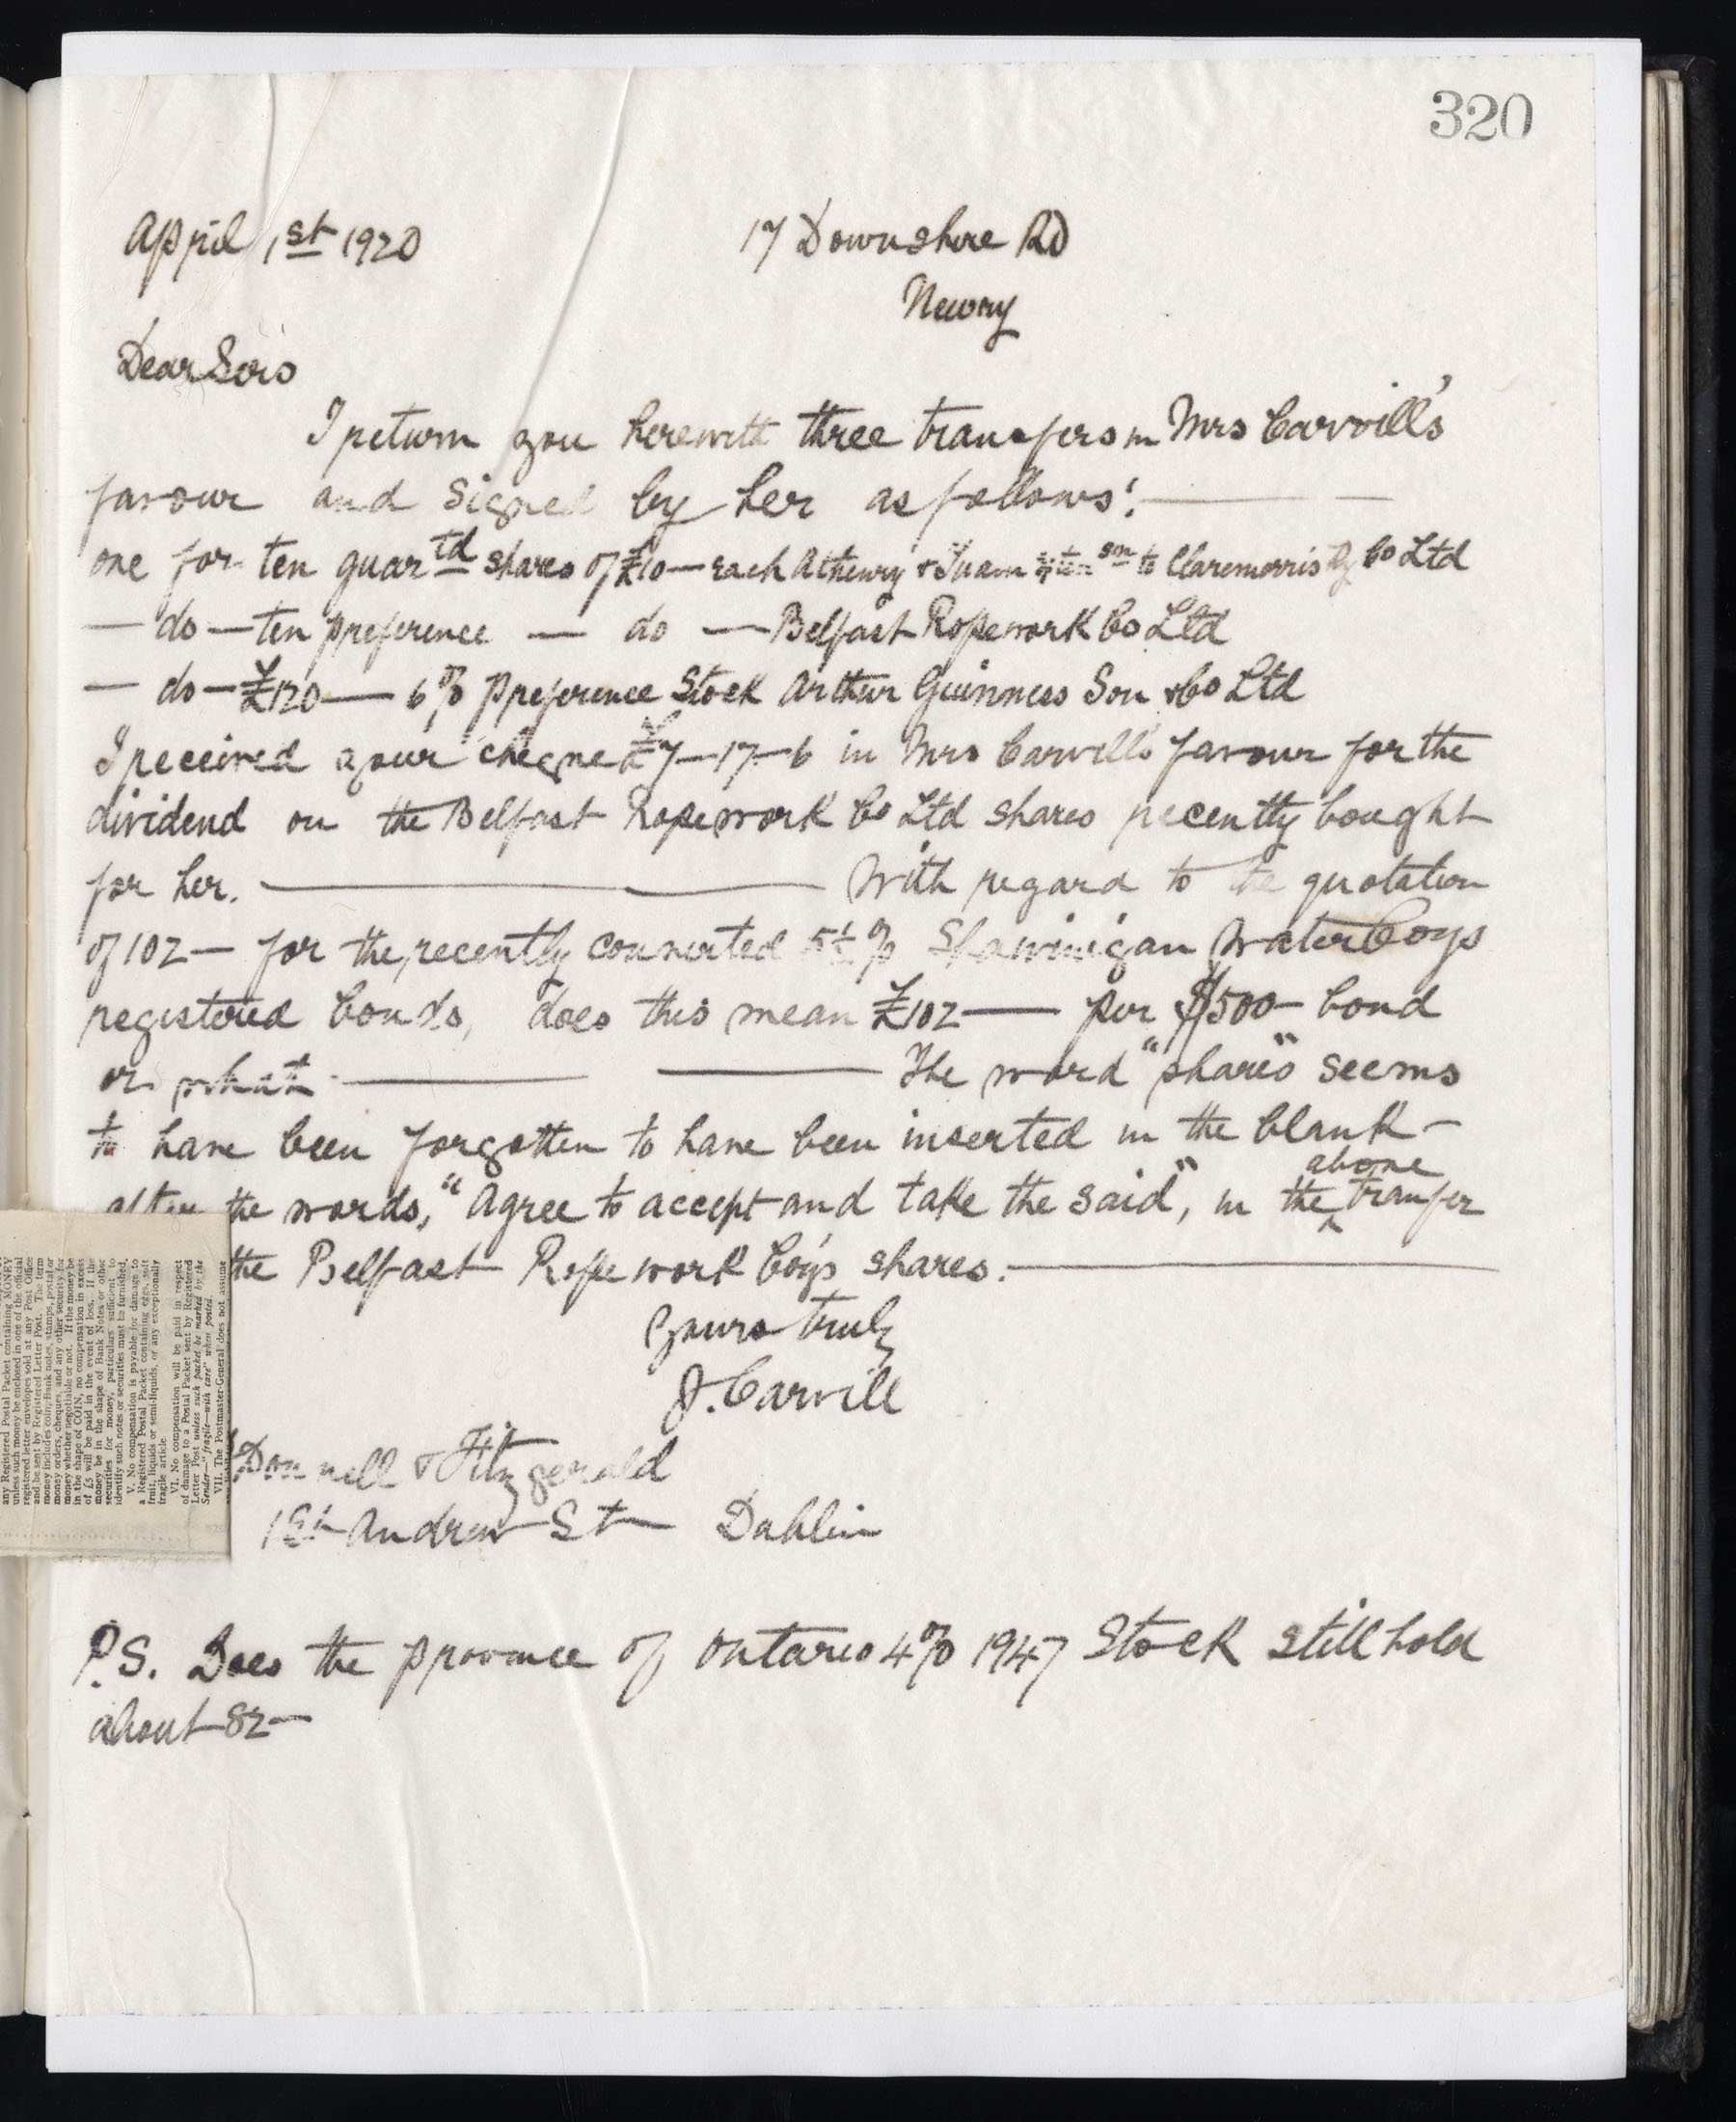 320
April 1st 1920 17 Downshire RD
Newry
Dear Sirs
I return you herewith three transfers in Mrs Carvill's
favour and signed by her as follows:—
one for ten guartd shares of £10— each Athenry & Tuam extensn to Claremorris Ry Co Ltd
— do — ten preference — do — Belfast Ropework Co Ltd
— do — £120 — 6% preference Stock Arthur Guinness Son & Co Ltd
I received your cheque £7-17-6 in Mrs Carvill's favour for the
dividend on the Belfast Ropework Co Ltd shares recently bought
for her. — With regard to the quotation
of 102— for the recently converted 5½% Shawinigan Water Coys
registered bonds, does this mean £102— per $500— bond
or what — The word "shares" seems
to have been forgotten to have been inserted in the blank—
after the words, "Agree to accept and take the said", in the above tranfer
the Belfast Ropework Coy's shares.—
Yours truly
J. Carvill
Donnell & Fitzgerald
1 St Andrew St Dublin
P.S. Does the province of Ontario 4% 1947 Stock still hold
about 82—
any Registered Postal Packet containing MONEY
unless such money be enclosed in one of the official
registered letter envelopes sold at any Post Office
and be sent by Registered Letter Post. The term
money includes coin, Bank notes, stamps, postal or
money orders, cheques, and any other security for
money whether negotiable or not. If the money be
in the shape of COIN, no compensation in excess
of £5 will be paid in the event of loss. If the
money be in the shape of Bank Notes or other
securities for money, particulars sufficient to
identify such notes or securities must be furnished.
V. No compensation is payable for damage to
a Registered Postal Packet containing eggs, soft
fruit, liquids or semi-liquids, or any exceptionally
fragile article.
VI. No compensation will be paid in respect
of damage to a Postal Packet sent by Registered
Letter Post unless such packet be marked by the
Sender—"fragile—with care" when posted.
VII. The Postmaster-General does not assume